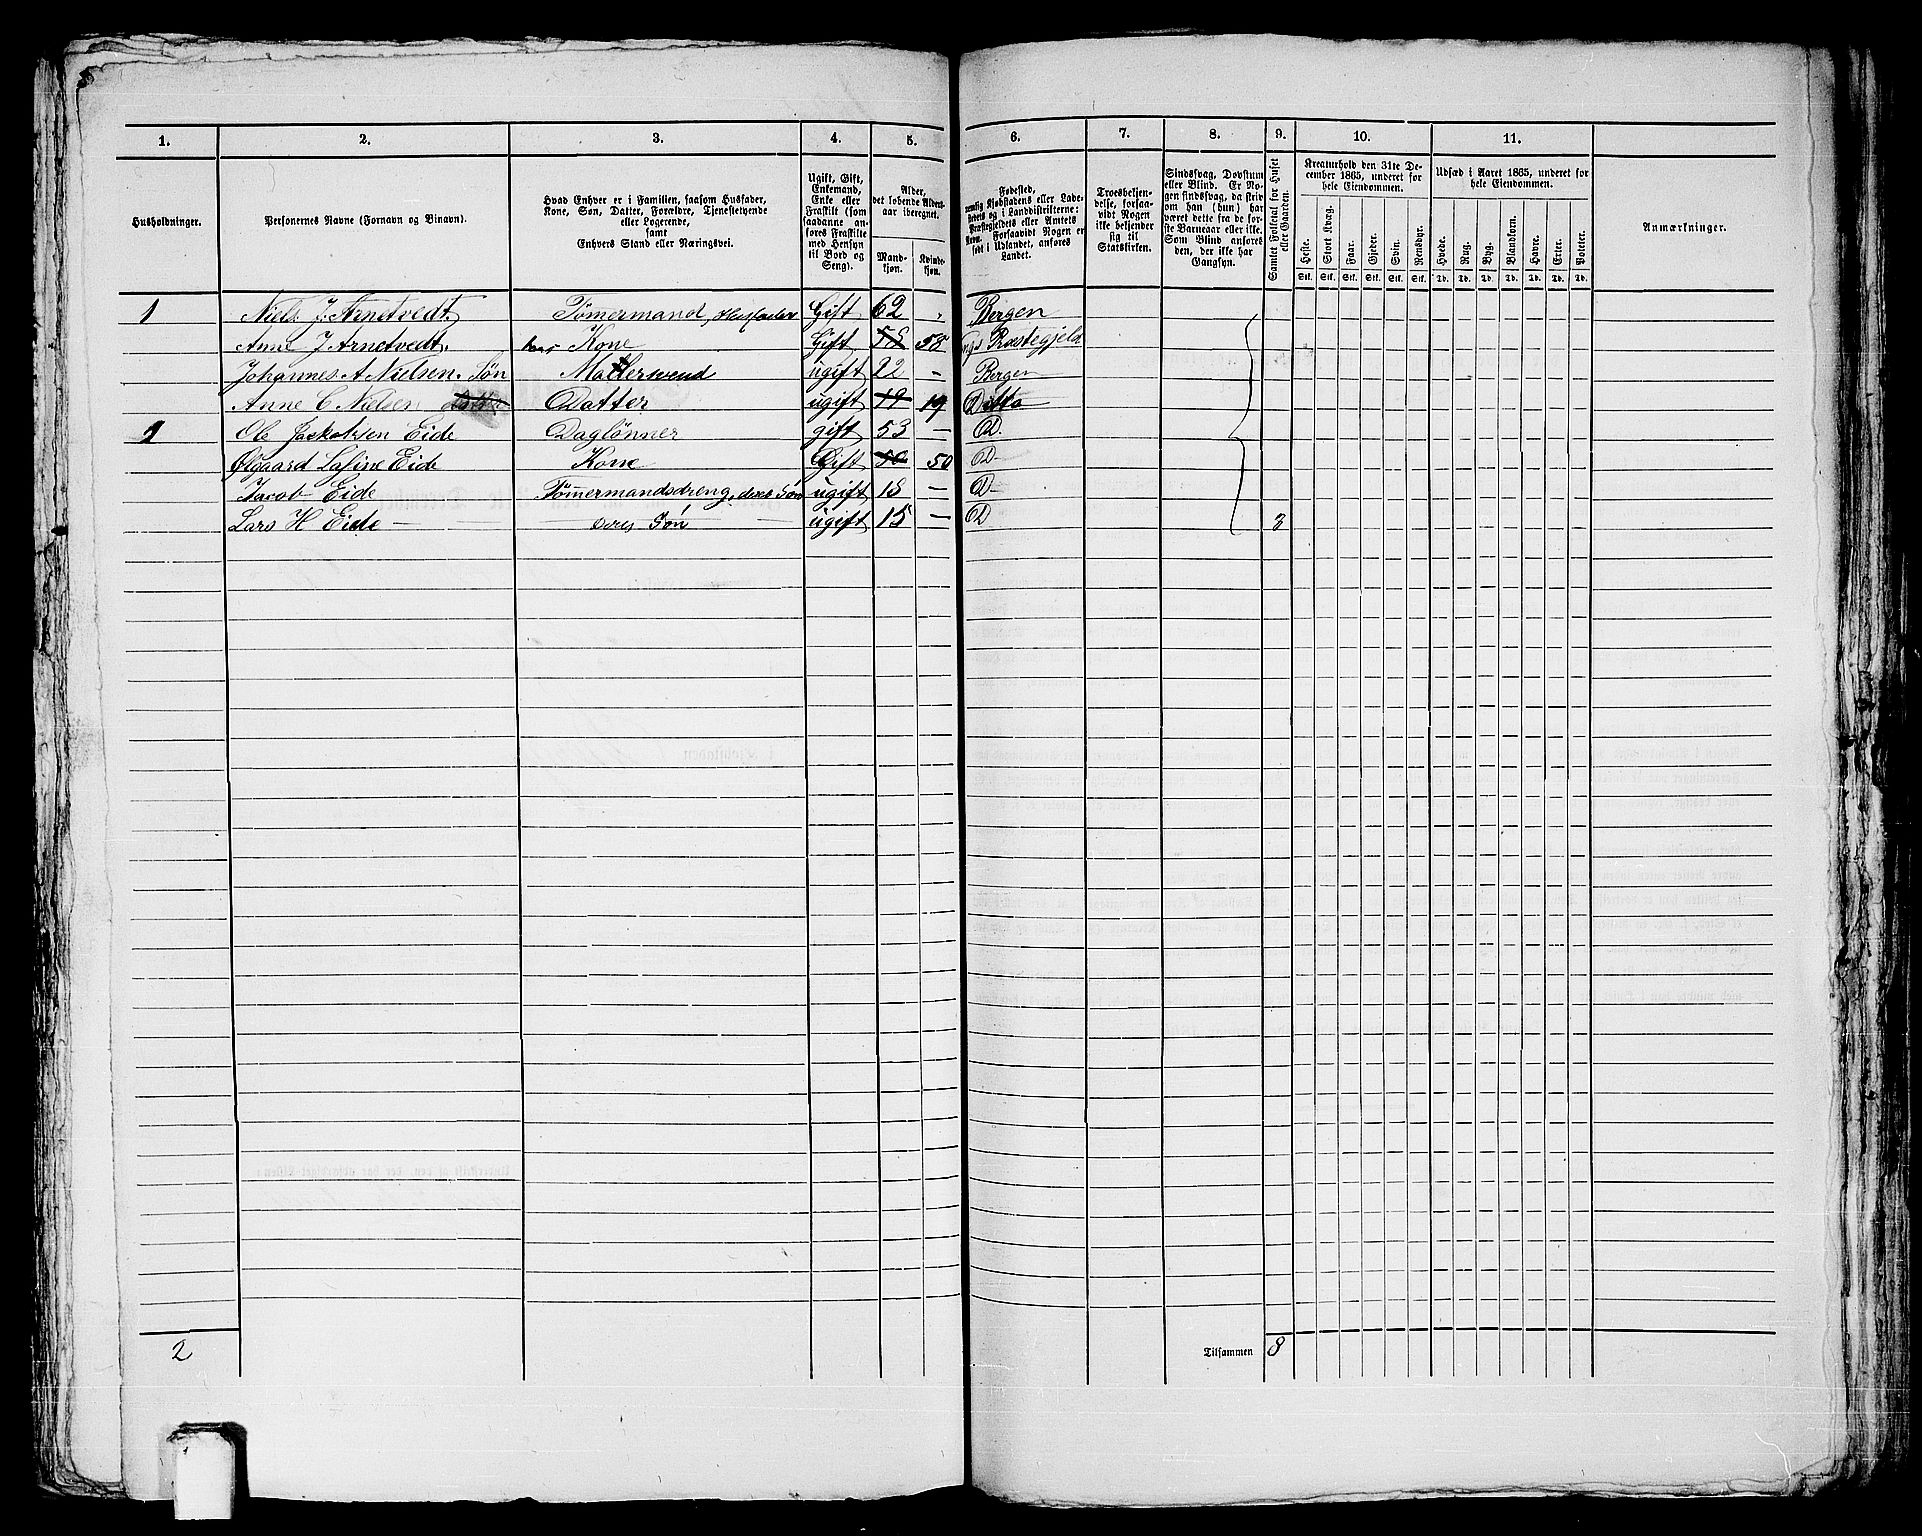 1. 2. 3. 4. 5. 6. 7. 8. 9. 10. 11.
Husholdninger.
Personernes Navne (Fornavn og Binavn).
Hvad Enhver er i Familien, saasom Husfader,
Kone, Søn, Datter, Forældre, Tjenestetyende
eller Logerende,
samt
Enhvers Stand eller Næringsvei.
Ugift, Gift,
Enkemand,
Enke eller
Fraskilt (som
saadanne an-
føres Fraskilte
med Hensyn
til Bord og
Seng).
Alder,
det løbende Alders-
aar iberegnet.
Mand-
kjøn.
Kvinde-
kjøn.
Fødested,
nemlig Kjøbstadens eller Lade-
stedets og i Landdistrikterne:
Præstegjeldets eller Amtets
Navn. Forsaavidt Nogen er
født i Udlandet, anføres
Landet.
Troesbekjen-
delse, forsaa-
vidt Nogen
ikke bekjender
sig til
Statskirken.
Sindssvag, Døvstum
eller Blind. Er No-
gen sindssvag, da skriv
om han (hun) har
været dette fra de før-
ste Barneaar eller ikke.
Som Blind anføres
den, der ikke har
Gangsyn.
Samlet Folketal for Huset
eller Gaarden.
Kreaturhold den 31te De-
cember 1865, underet for
hele Eiendommen.
Heste. Stort Kvæg. Faar. Gjeder. Svin. Rensdyr.
Stk. Stk. Stk. Stk. Stk. Stk.
Udsæd i Aaret 1865, underet for
hele Eiendommen.
Hvede. Rug. Byg. Blandkorn. Havre. Erter. Poteter.
Td. Td. Td. Td. Td. Td. Td.
Anmærkninger.
1 Niels J. Arnetvedt. Tømermand, Husfader Gift 62 Bergen
Anne J Arnetvedt. hans Kone Gift 58 58 Præstegjeld
Johannes A Nielsen. Søn Matlersvend ugift 22 — Bergen
Anne C Nielsen Datter Datter ugift 19 19 Ditto
1 Ole Jackobsen Eide Daglønner gift 53 — D.
Ølgaard Lasine Eide Kone Gift 50 50 D—
Jacob Eide Tømermandsdreng, deres Søn ugift 18 — D—
Lars H Eide — deres Søn ugift 15 — D 8
2 Tilsammen 8